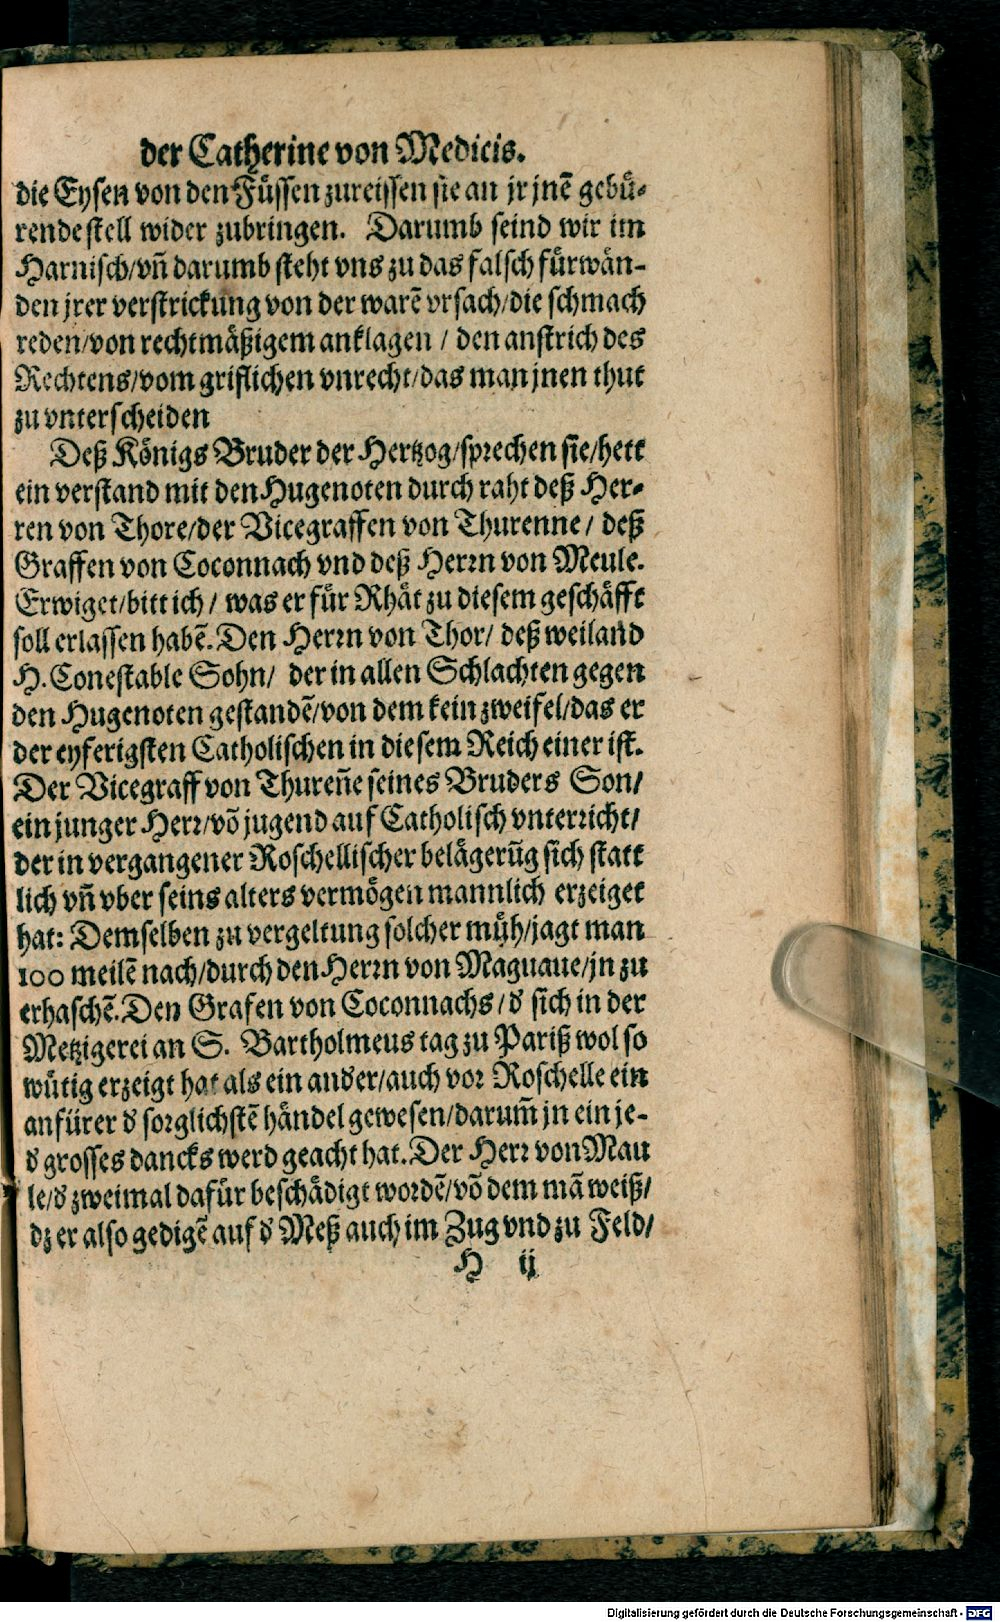 der Catherine von Medicis.
die Eysen von den Füssen zureissen sie an jr jnē gebü-
rende stell wider zubringen. Darumb seind wir im
Harnisch/vñ darumb steht vns zu das falsch fürwän-
den jrer verstrickung von der warē vrsach/die schmach
reden/von rechtmäßigem anklagen / den anstrich des
Rechtens/vom griflichen vnrecht/das man jnen thut
zu vnterscheiden
Deß Königs Bruder der Hertzog/sprechen sie/hett
ein verstand mit den Hugenoten durch raht deß Her-
ren von Thore/der Vicegraffen von Thurenne/ deß
Graffen von Coconnach vnd deß Herrn von Meule.
Erwiget/bitt ich / was er für Rhät zu diesem geschäfft
soll erlassen habē. Den Herrn von Thor/ deß weiland
H. Conestable Sohn/ der in allen Schlachten gegen
den Hugenoten gestandē/von dem kein zweifel/das er
der eyferigsten Catholischen in diesem Reich einer ist.
Der Vicegraff von Thureñe seines Bruders Son/
ein junger Herr/vō jugend auf Catholisch vnterricht/
der in vergangener Roschellischer belägerūg sich statt
lich vñ vber seins alters vermögen mannlich erzeiget
hat: Demselben zu vergeltung solcher müh/jagt man
100 meilē nach/durch den Herrn von Maguaue/jn zu
erhaschē. Den Grafen von Coconnachs/d sich in der
Metzigerei an S. Bartholmeus tag zu Pariß wol so
wütig erzeigt hat als ein ander/auch vor Roschelle ein
anfürer d sorglichstē händel gewesen/darum̄ jn ein je-
d grosses dancks werd geacht hat. Der Herr von Mau
le/d zweimal dafür beschädigt wordē/vō dem mā weiß/
dz er also gedigē auf d Meß auch im Zug vnd zu Feld/
H ij
Digitalisierung gefördert durch die Deutsche Forschungsgemeinschaft - DFG